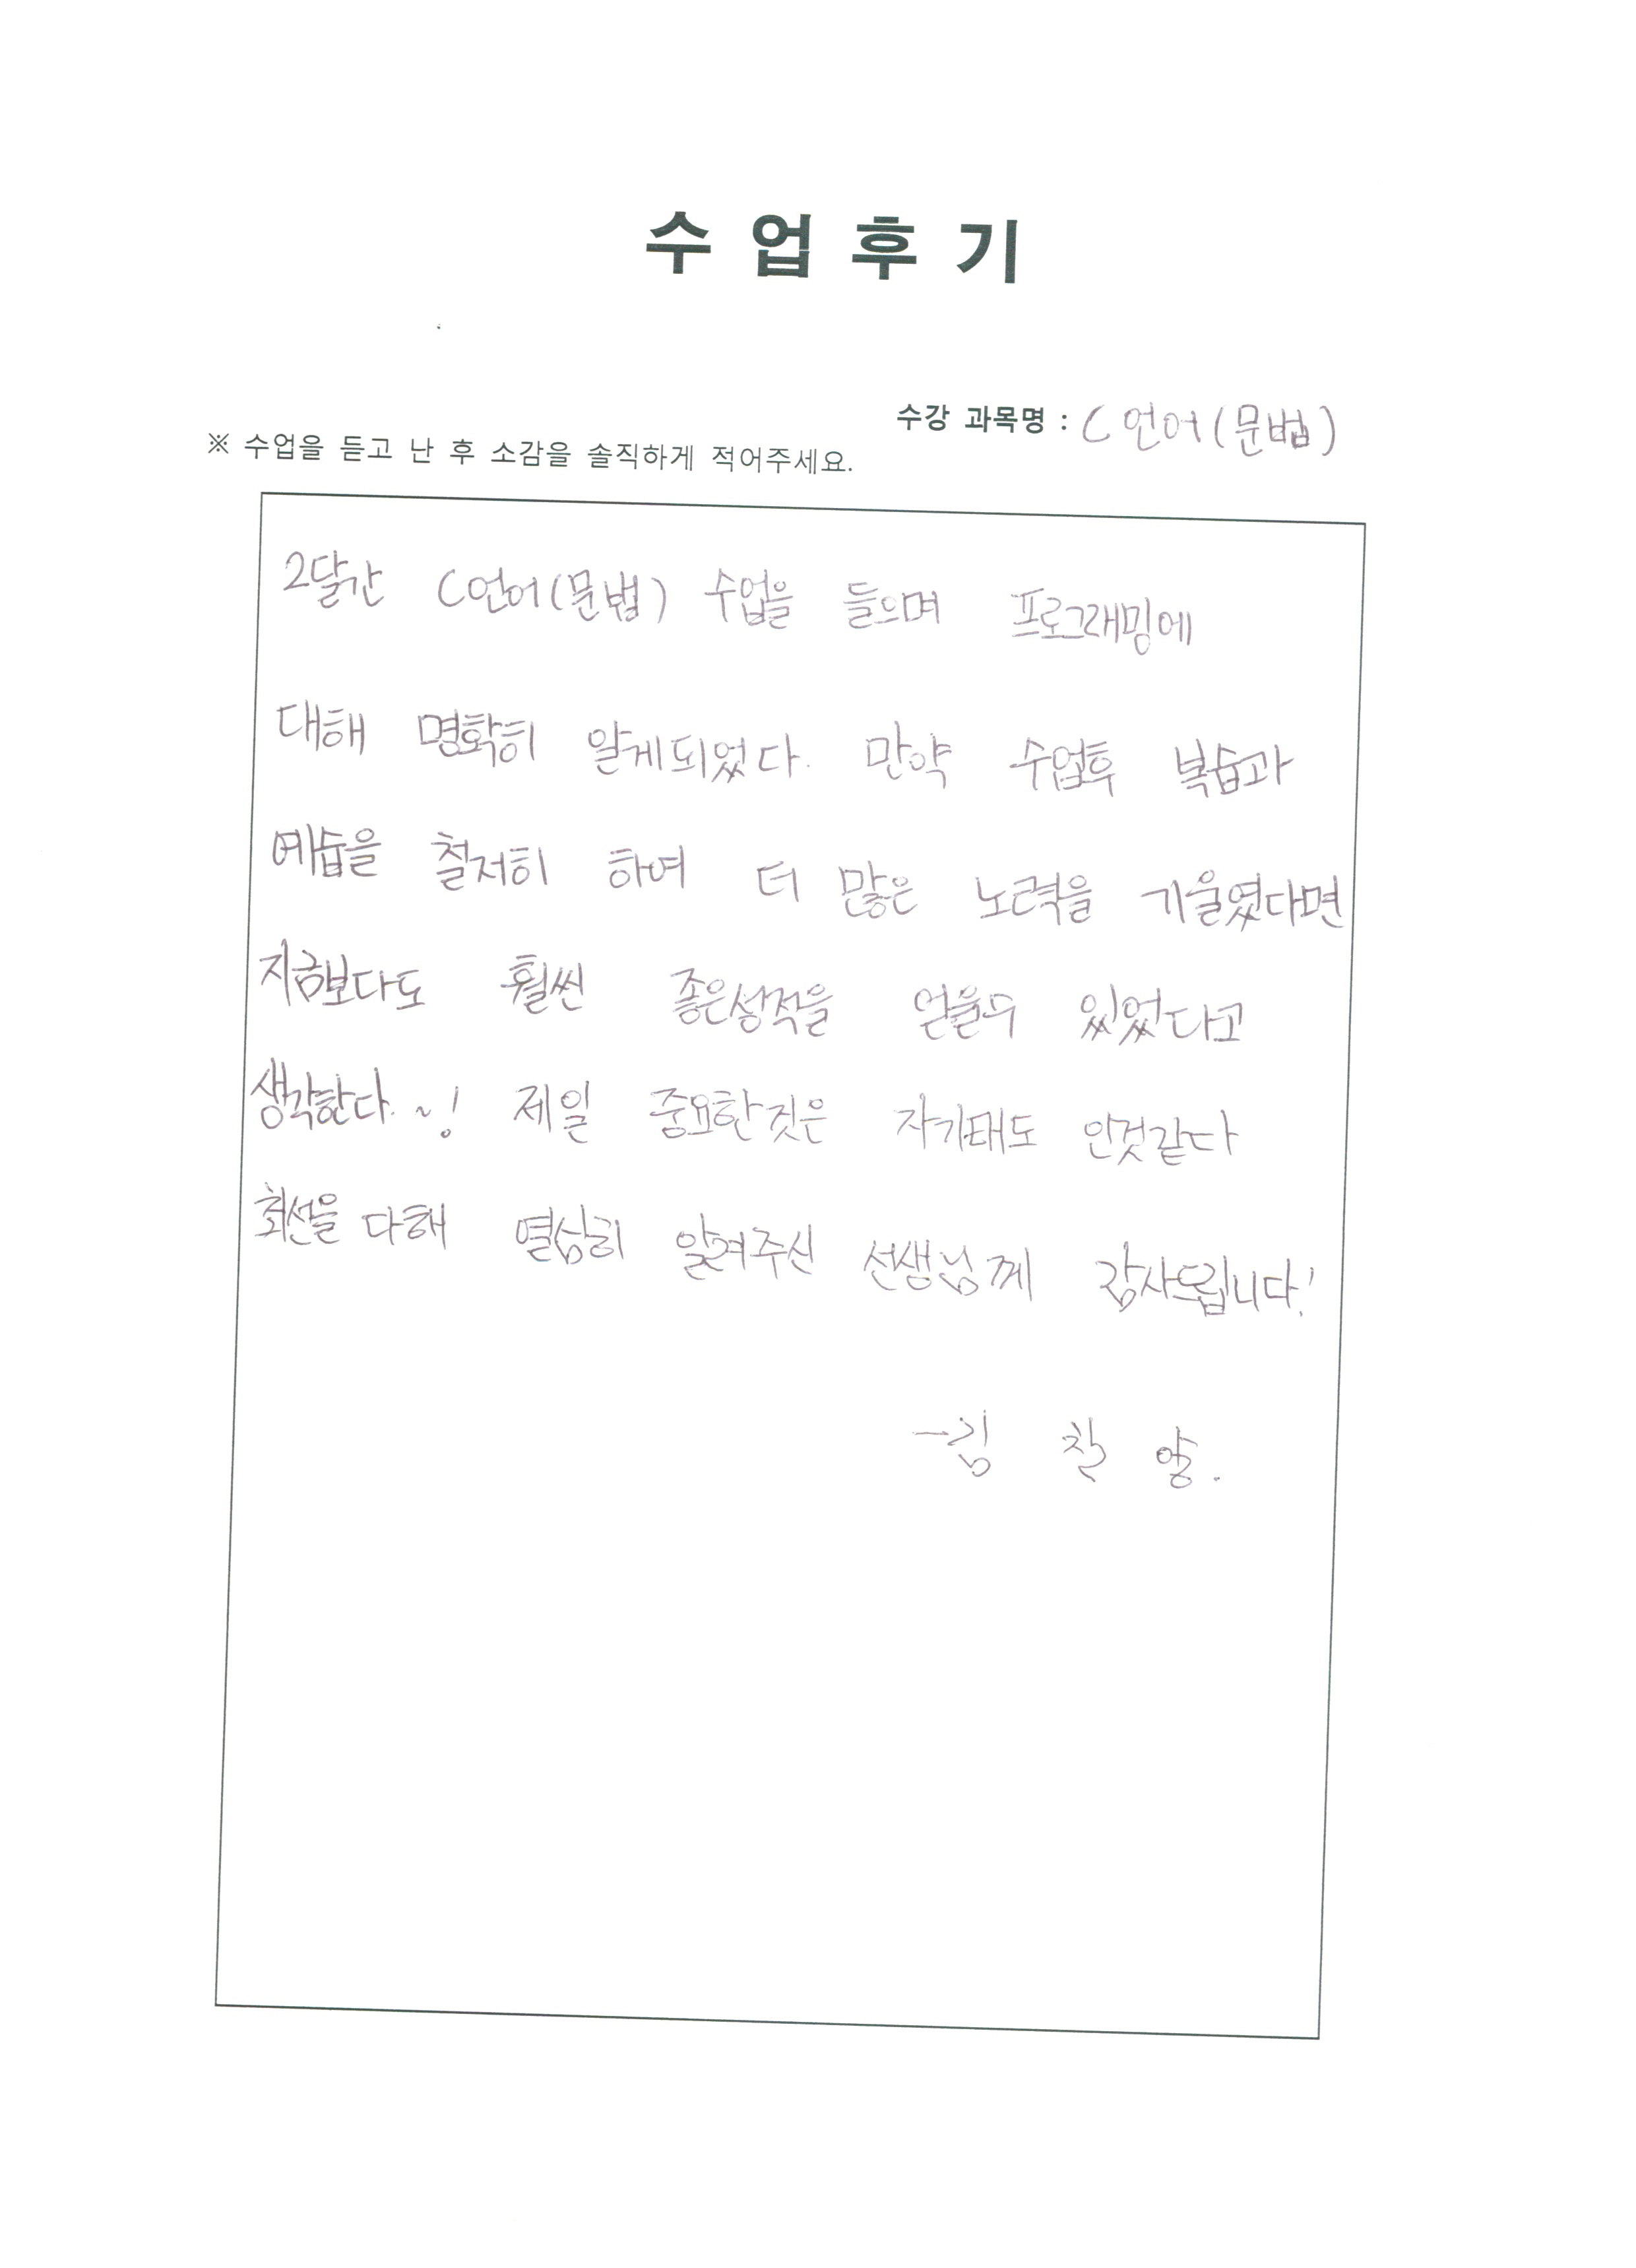 수업후기
수강 과목명 : C언어(문법)
※ 수업을 듣고 난 후 소감을 솔직하게 적어주세요.
2달간 C언어(문법) 수업을 들으며 프로그래밍에
대해 명확히 알게되었다. 만약 수업후 복습과
예습을 철저히 하여 더 많은 노력을 기울였다면
지금보다도 훨씬 좋은성적을 얻을수 있었다고
생각한다.~! 제일 중요한것은 자기태도 인것같다
최선을 다해 열심히 알려주신 선생님께 감사드립니다!
-김